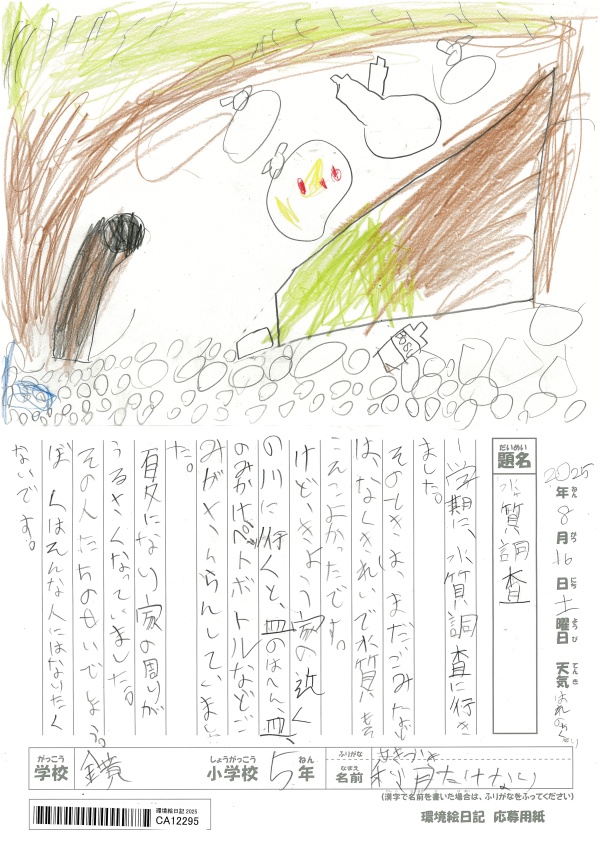 2025年8月16日土曜日 天気
だいめい
題名
水質調査
一学期に、水質調査に行き
ました。
そのときは、まだごみなど
は、なくきれいで水質もそ
こそこよかったです。
けど、きょう家の近く
の川に行くと、皿のはへん、皿、
のみかけペットボトルなどご
みがさんらんしていまし
た。
夏になり家の周りが
うるさくなっていました。
その人たちのせいでしょう。
ぼくはそんな人にはなりたく
ないです。
がっこう しょうがっこう ねん ふりがな
学校 鏡 小学校 5年 なまえ 名前
(漢字で名前を書いた場合は、ふりがなをふってください)
環境絵日記 2025
CA12295
環境絵日記 応募用紙